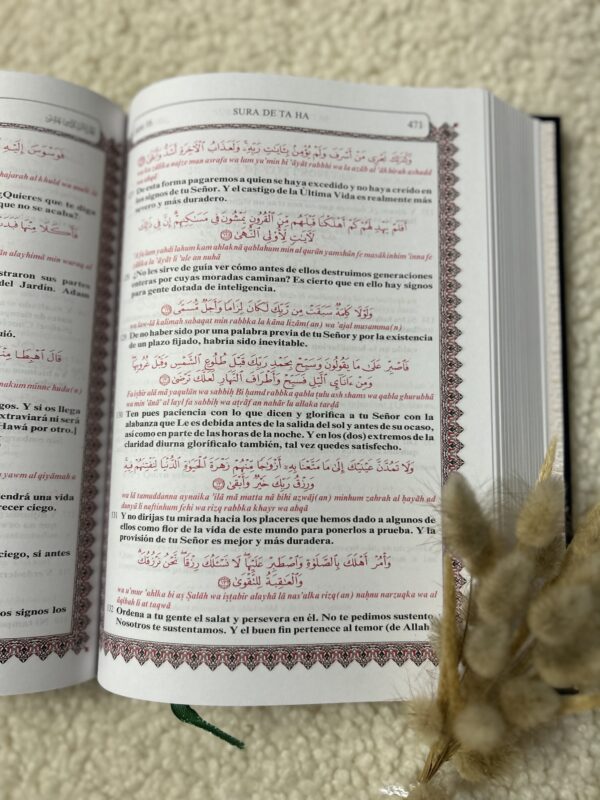 SURA DE TA HA
471
hajarah al khuld wa mulk
¿Quieres que te diga
que no se acaba?
alayhimā min waraq al
straron sus partes
del Jardín. Adam
uió.
nakum minne huda(n)
gos. Y si os llega
extraviará ni será
Hawá por otro.]
yawm al qiyāmah a
endrá una vida
recer ciego.
ciego, si antes
os signos los
وَكَذَٰلِكَ نَجْزِى مَنْ أَسْرَفَ وَلَمْ يُؤْمِنۢ بِـَٔايَـٰتِ رَبِّهِۦ ۚ وَلَعَذَابُ ٱلْـَٔاخِرَةِ أَشَدُّ وَأَبْقَىٰٓ
asrafa wa lam yu'min bi 'āyāti rabbihi wa la aẓāb al 'ākhirah ashadd
De esta forma pagaremos a quien se haya excedido y no haya creído en
los signos de tu Señor. Y el castigo de la Última Vida es realmente más
severo y más duradero.
أَفَلَمْ يَهْدِ لَهُمْ كَمْ أَهْلَكْنَا قَبْلَهُم مِّنَ ٱلْقُرُونِ يَمْشُونَ فِى مَسَـٰكِنِهِمْ ۗ إِنَّ فِى ذَٰلِكَ
لَـَٔايَـٰتٍ لِّأُو۟لِى ٱلنُّهَىٰ
A fa lam yahdi lahum kam ahlaknā qablahum min al qurūn yamshūn fe masākinhim 'inna fe
¿No les sirve de guía ver cómo antes de ellos destruimos generaciones
enteras por cuyas moradas caminan? Es cierto que en ello hay signos
para gente dotada de inteligencia.
وَلَوْلَا كَلِمَةٌ سَبَقَتْ مِن رَّبِّكَ لَكَانَ لِزَامًا وَأَجَلٌ مُّسَمًّى
wa law-lā kalimah sabaqat min rabbka la kāna lizām(an) wa 'ajal musamma(n)
129 De no haber sido por una palabra previa de tu Señor y por la existencia
de un plazo fijado, habría sido inevitable.
فَٱصْبِرْ عَلَىٰ مَا يَقُولُونَ وَسَبِّحْ بِحَمْدِ رَبِّكَ قَبْلَ طُلُوعِ ٱلشَّمْسِ وَقَبْلَ غُرُوبِهَا ۖ
وَمِنْ ءَانَآئِ ٱلَّيْلِ فَسَبِّحْ وَأَطْرَافَ ٱلنَّهَارِ لَعَلَّكَ تَرْضَىٰ
Fa iṣbir alā mā yaqulūn wa sabbiḥ Bi ḥamd rabbka qabla ṭulu ash shams wa qabla ghurubhā
wa min 'ānā' al layl fa sabbiḥ wa aṭrāf an nahār la allaka tarḍā
130 Ten pues paciencia con lo que dicen y glorifica a tu Señor con la
alabanza que Le es debida antes de la salida del sol y antes de su ocaso,
así como en parte de las horas de la noche. Y en los (dos) extremos de la
claridad diurna glorifícalo también, tal vez quedes satisfecho.
وَلَا تَمُدَّنَّ عَيْنَيْكَ إِلَىٰ مَا مَتَّعْنَا بِهِۦٓ أَزْوَٰجًا مِّنْهُمْ زَهْرَةَ ٱلْحَيَوٰةِ ٱلدُّنْيَا لِنَفْتِنَهُمْ فِيهِ ۚ
وَرِزْقُ رَبِّكَ خَيْرٌ وَأَبْقَىٰ
wa lā tamuddanna aynaika 'ilā mā matta nā bihi azwāj(an) minhum zahrah al ḥayāh ad
dunyā li naftinhum fehi wa rizq rabbka khayr wa abqā
131 Y no dirijas tu mirada hacia los placeres que hemos dado a algunos de
ellos como flor de la vida de este mundo para ponerlos a prueba. Y la
provisión de tu Señor es mejor y más duradera.
وَأْمُرْ أَهْلَكَ بِٱلصَّلَوٰةِ وَٱصْطَبِرْ عَلَيْهَا ۖ لَا نَسْـَٔلُكَ رِزْقًا ۖ نَّحْنُ نَرْزُقُكَ ۗ
وَٱلْعَـٰقِبَةُ لِلتَّقْوَىٰ
wa u'mur 'ahlka bi aṣ Ṣalāh wa iṣṭabir alayhā lā nas'alka rizq(an) naḥnu narzuqka wa al
āqibah li at taqwā
132 Ordena a tu gente el salat y persevera en él. No te pedimos sustento,
Nosotros te sustentamos. Y el buen fin pertenece al temor (de Allah)